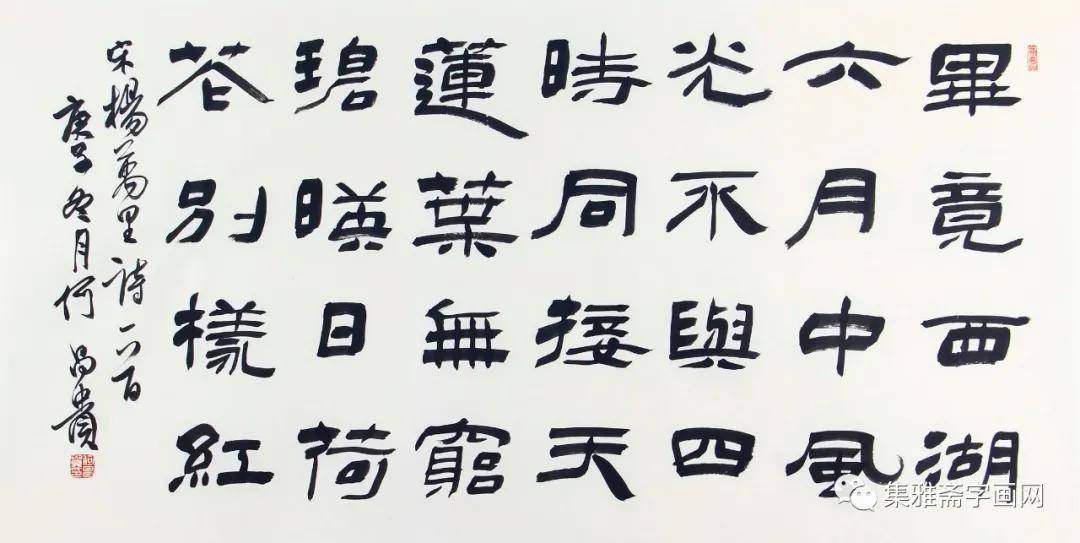 畢竟西湖
六月中風
光不與四
時同接天
蓮葉無窮
碧暎日荷
花别樣紅
宋楊萬里詩一首
庚子冬月何昌貴
集雅斋字画网